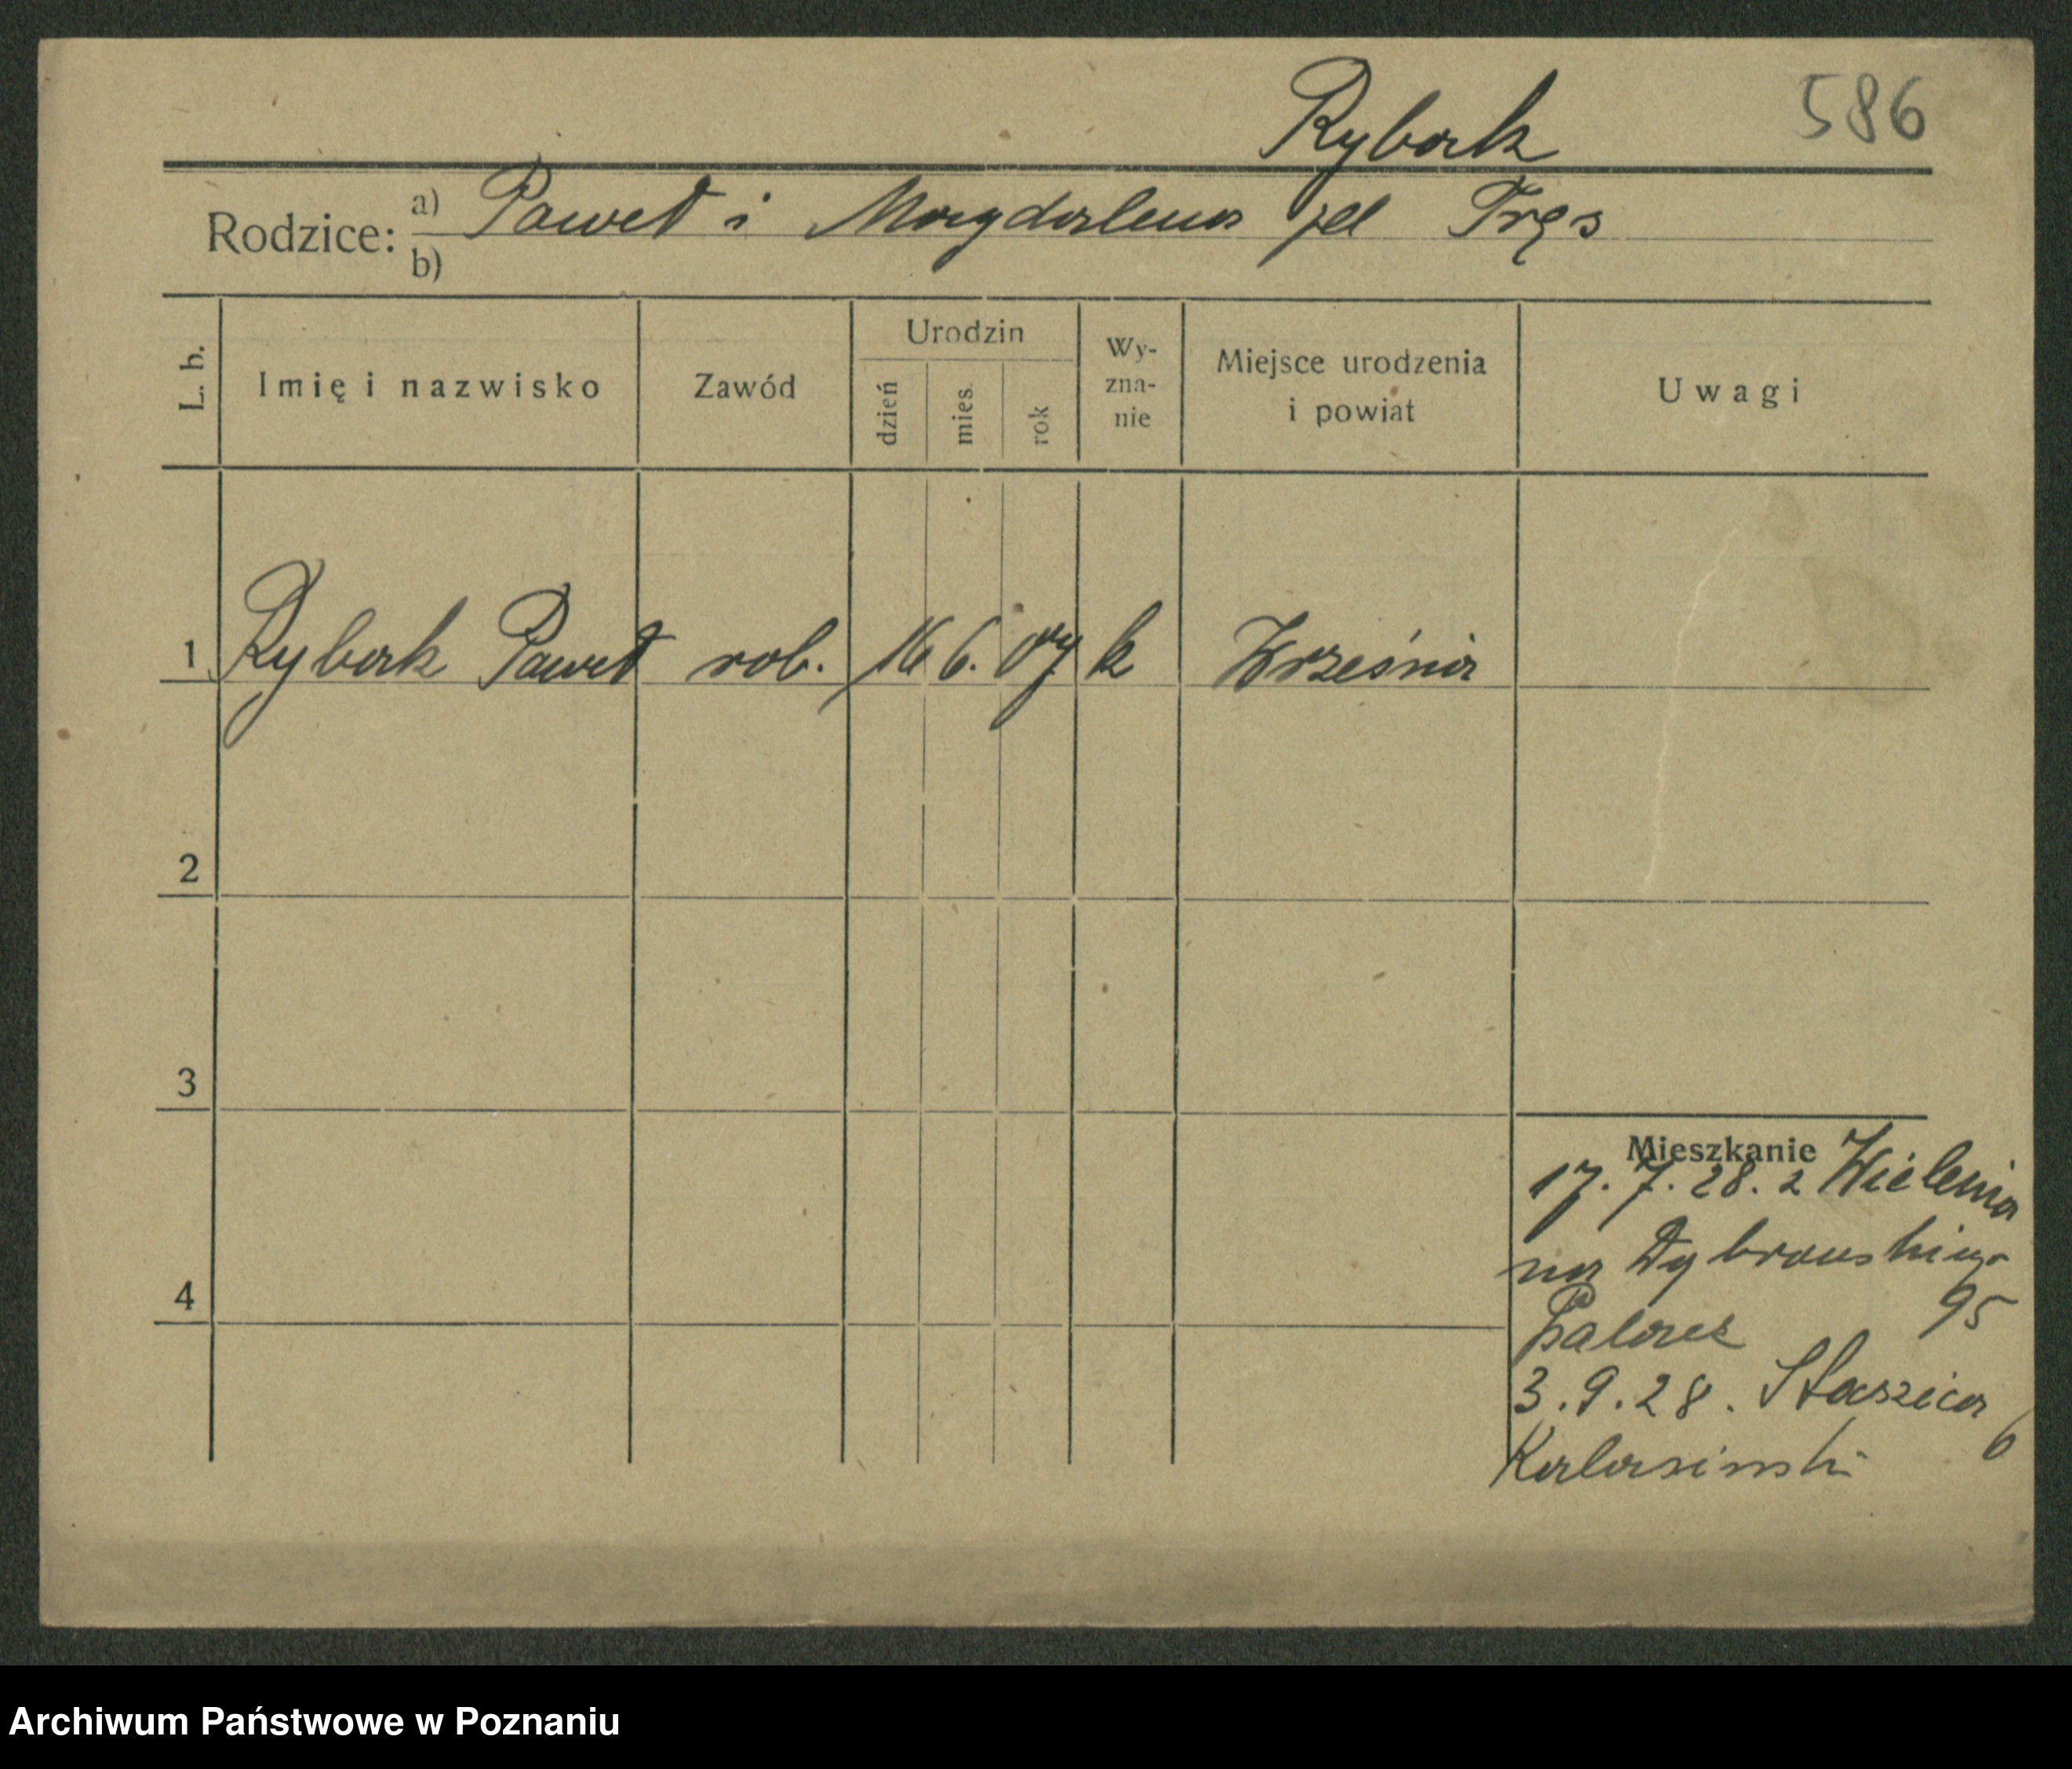 586
Rybak
Rodzice: a) Paweł i Magdalena zd Tręs
b)
L. b. Imię i nazwisko Zawód Urodzin dzień mies. rok Wy-zna-nie Miejsce urodzenia i powiat Uwagi
1 Rybak Paweł rob. 16 6. 07 k Września
2
3
4
Mieszkanie
17. 7. 28. z Wielenia
na Dąbrowskiego
95
3. 9. 28. Staszica
6
Kalasinski
Archiwum Państwowe w Poznaniu